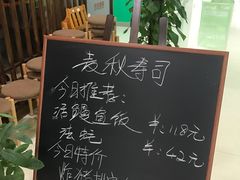 麦秋寿司
今日推荐：
活鳗鱼饭 ¥:118元
¥:42元
今日特价